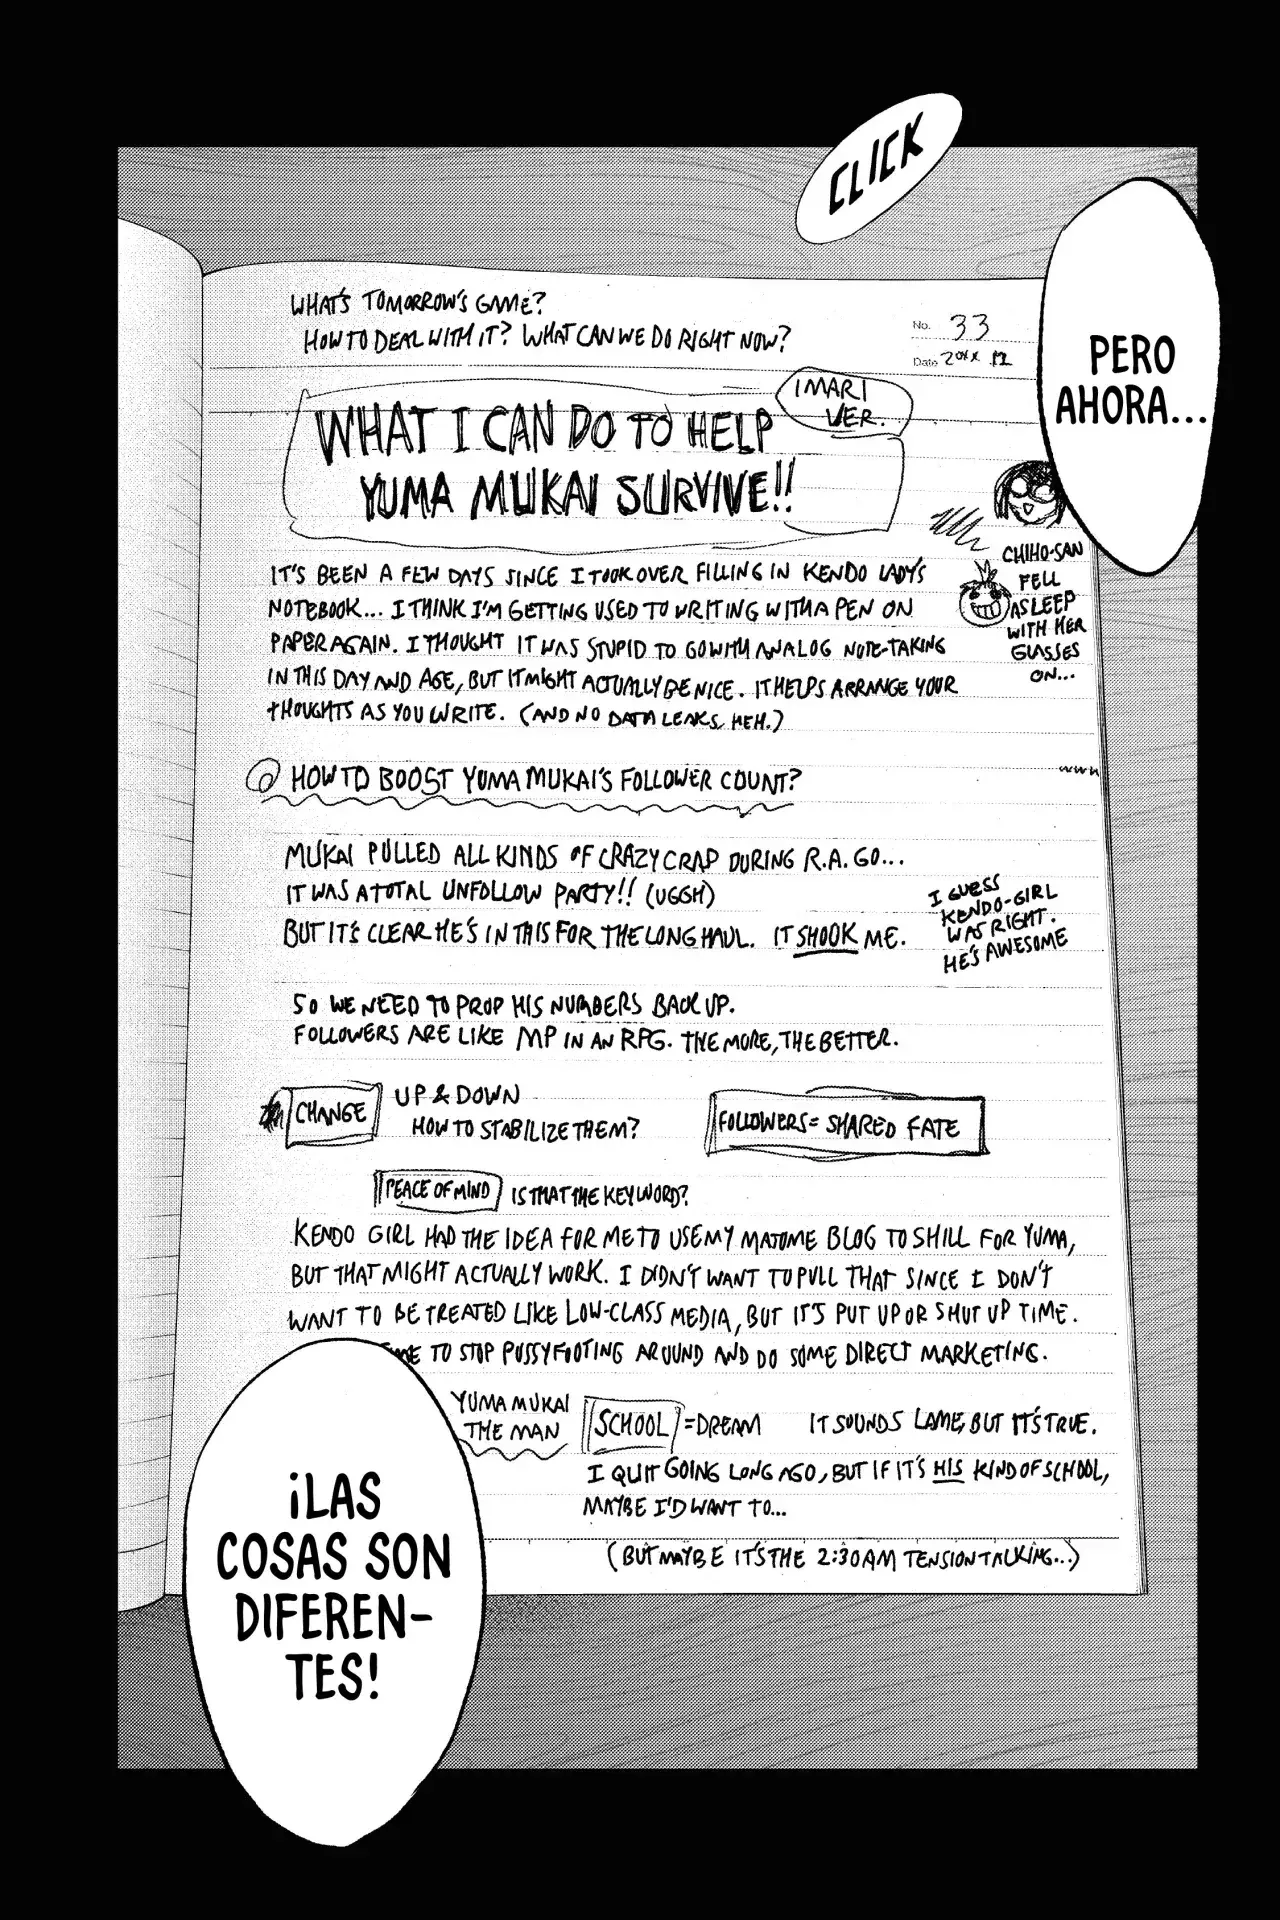 CLICK
PERO
AHORA...
WHAT'S TOMORROW'S GAME?
HOW TO DEAL WITH IT? WHAT CAN WE DO RIGHT NOW?
No. 33
Date 20XX 12
IMARI
VER.
WHAT I CAN DO TO HELP
YUMA MUKAI SURVIVE!!
CHIHO-SAN
FELL
ASLEEP
WITH HER
GLASSES
ON...
IT'S BEEN A FEW DAYS SINCE I TOOK OVER FILLING IN KENDO LADY'S
NOTEBOOK... I THINK I'M GETTING USED TO WRITING WITH A PEN ON
PAPER AGAIN. I THOUGHT IT WAS STUPID TO GO WITH ANALOG NOTE-TAKING
IN THIS DAY AND AGE, BUT IT MIGHT ACTUALLY BE NICE. IT HELPS ARRANGE YOUR
THOUGHTS AS YOU WRITE. (AND NO DATA LEAKS, HEH.)
HOW TO BOOST YUMA MUKAI'S FOLLOWER COUNT?
www
MUKAI PULLED ALL KINDS OF CRAZY CRAP DURING R.A. GO...
IT WAS A TOTAL UNFOLLOW PARTY!! (UGGH)
BUT IT'S CLEAR HE'S IN THIS FOR THE LONG HAUL. IT SHOOK ME.
I GUESS
KENDO-GIRL
WAS RIGHT.
HE'S AWESOME
SO WE NEED TO PROP HIS NUMBERS BACK UP.
FOLLOWERS ARE LIKE MP IN AN RPG. THE MORE, THE BETTER.
CHANGE UP & DOWN
HOW TO STABILIZE THEM?
FOLLOWERS = SHARED FATE
PEACE OF MIND IS THAT THE KEYWORD?
KENDO GIRL HAD THE IDEA FOR ME TO USE MY MATOME BLOG TO SHILL FOR YUMA,
BUT THAT MIGHT ACTUALLY WORK. I DIDN'T WANT TO PULL THAT SINCE I DON'T
WANT TO BE TREATED LIKE LOW-CLASS MEDIA, BUT IT'S PUT UP OR SHUT UP TIME.
TO STOP PUSSYFOOTING AROUND AND DO SOME DIRECT MARKETING.
YUMA MUKAI
THE MAN
SCHOOL = DREAM IT SOUNDS LAME, BUT IT'S TRUE.
I QUIT GOING LONG AGO, BUT IF IT'S HIS KIND OF SCHOOL,
MAYBE I'D WANT TO...
(BUT MAYBE IT'S THE 2:30AM TENSION TALKING...)
¡LAS
COSAS SON
DIFEREN-
TES!